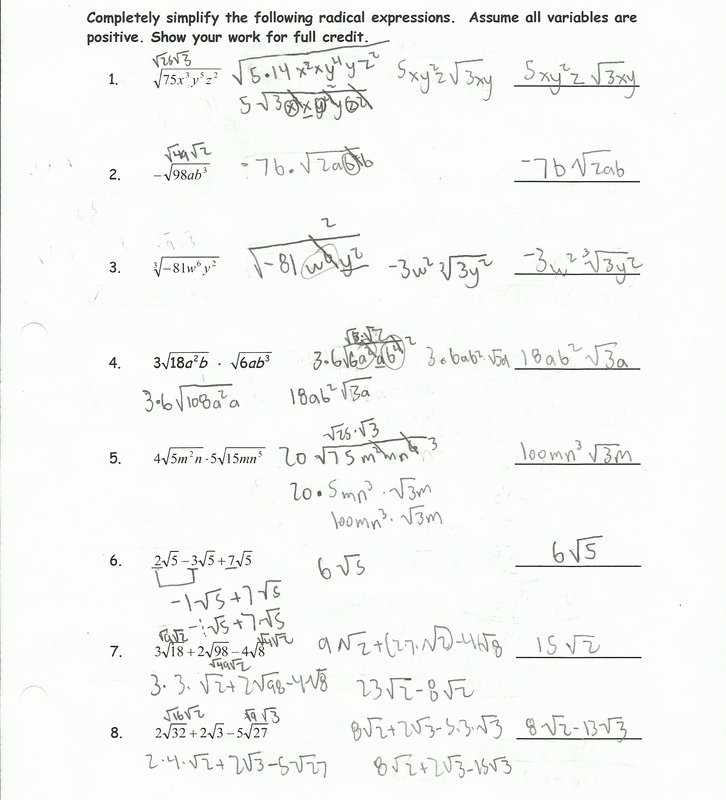 Completely simplify the following radical expressions. Assume all variables are
positive. Show your work for full credit.
√25√3
1. √75x³y⁵z² √5·14 x²xy⁴yz² 5xy²z√3xy 5xy²z √3xy
√49√2
2. -√98ab³ -7b·√2ab²b -7b√2ab
3. ∛-81w⁶y² -3w²∛3y² -3w²∛3y²
4. 3√18a²b · √6ab³ 3·6ab²√3a 18ab²√3a
3·6√108a²a 18ab²√3a
√25·√3
5. 4√5m²n·5√15mn⁵ 20√75m²mn⁶ 3 100mn³√3m
20·5mn³·√3m
100mn³·√3m
6. 2√5-3√5+7√5 6√5 6√5
-1√5+7√5
-1√5+7√5
√9√2 √4√2
7. 3√18+2√98-4√8 9√2+(27·√2)-4√8 15√2
√49√2
3·3·√2+2√98-4√8 23√2-8√2
√16√2 √9√3
8. 2√32+2√3-5√27 8√2+2√3-5·3·√3 8√2-13√3
2·4·√2+2√3-5√27 8√2+2√3-15√3